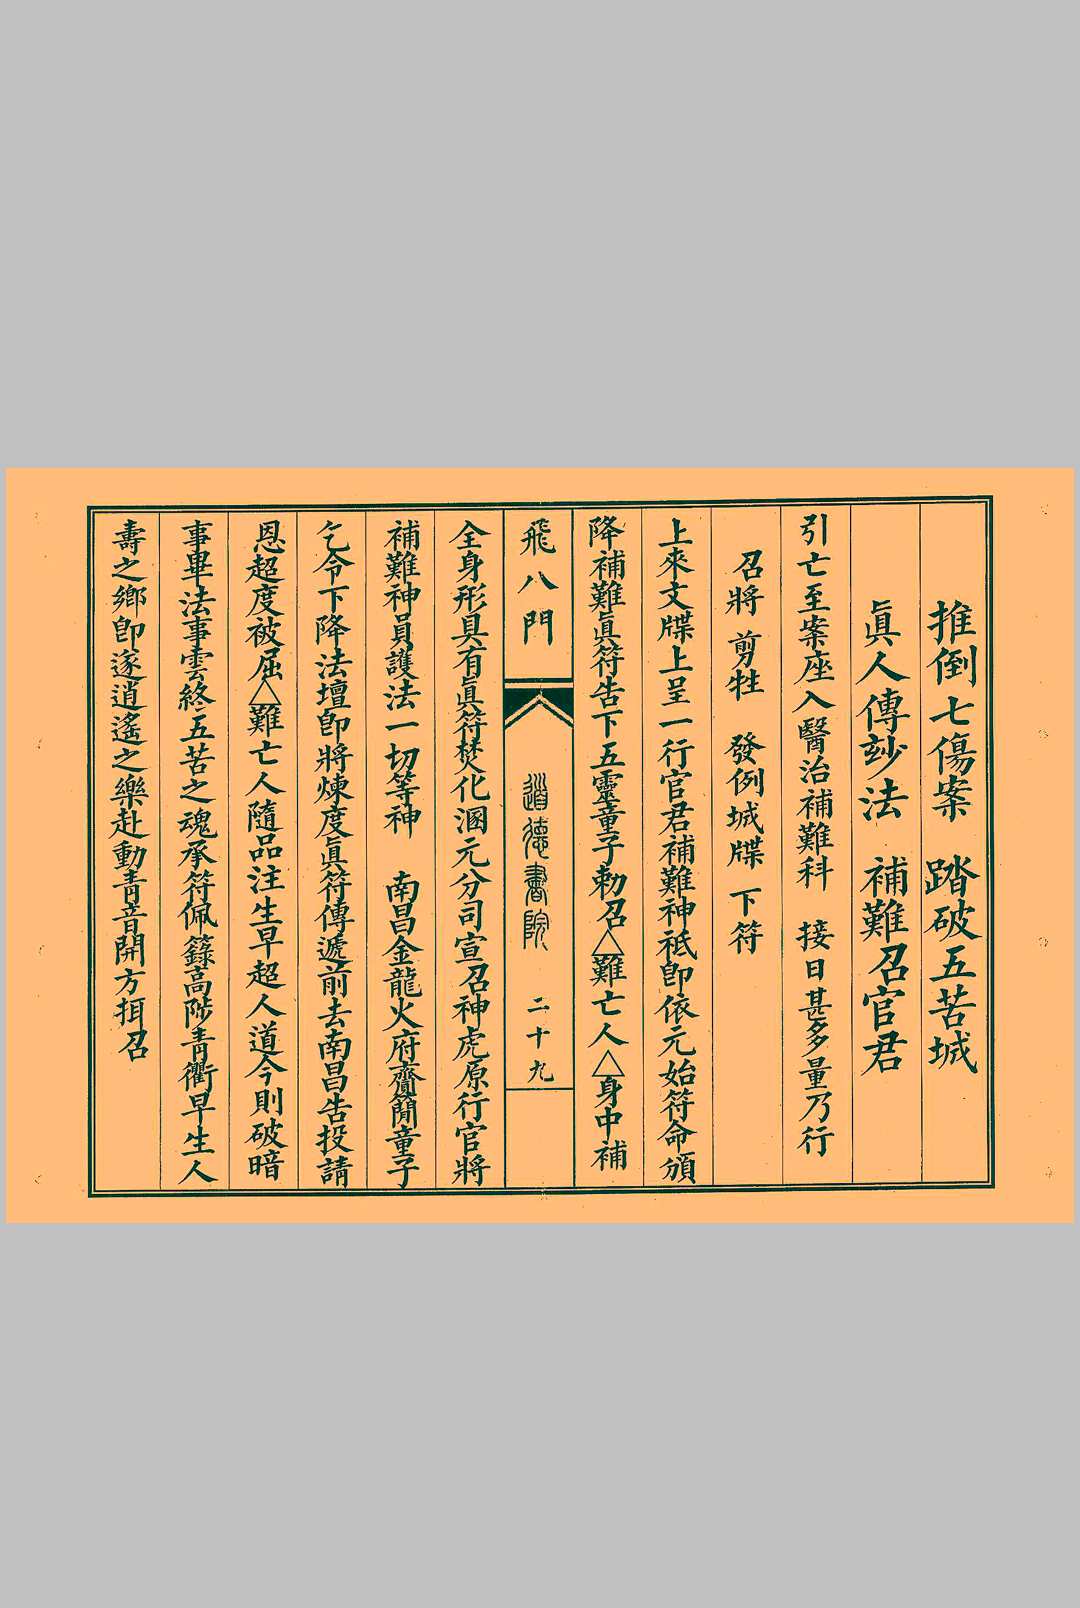 推倒七傷案　踏破五苦城
眞人傳玅法　補難召官君
引亡至案座入醫治補難科　接日甚多量乃行
召將　剪牲　發例城牒　下符
上來文牒上呈一行官君補難神祇卽依元始符命頒
降補難眞符告下五靈童子勅召△難亡人△身中補
飛八門
道德書院
二十九
全身形具有眞符焚化溷元分司宣召神虎原行官將
補難神員護法一切等神　南昌金龍火府齎簡童子
乞令下降法壇卽將煉度眞符傳遞前去南昌告投請
恩超度被屈△難亡人隨品注生早超人道今則破暗
事畢法事雲終五苦之魂承符佩籙高陟青衢早生人
壽之鄉卽遂逍遙之樂赴動青音開方揖召